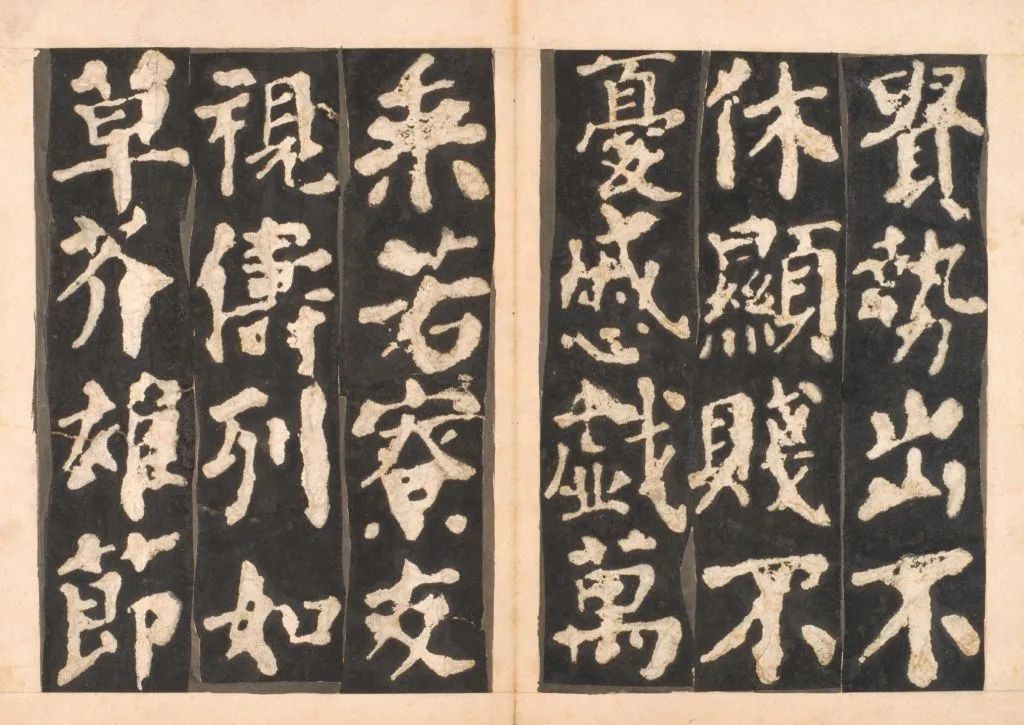 貴勢出不
休顯賤不
憂慼戲萬
乘若寮友
視儔列如
草芥雄節